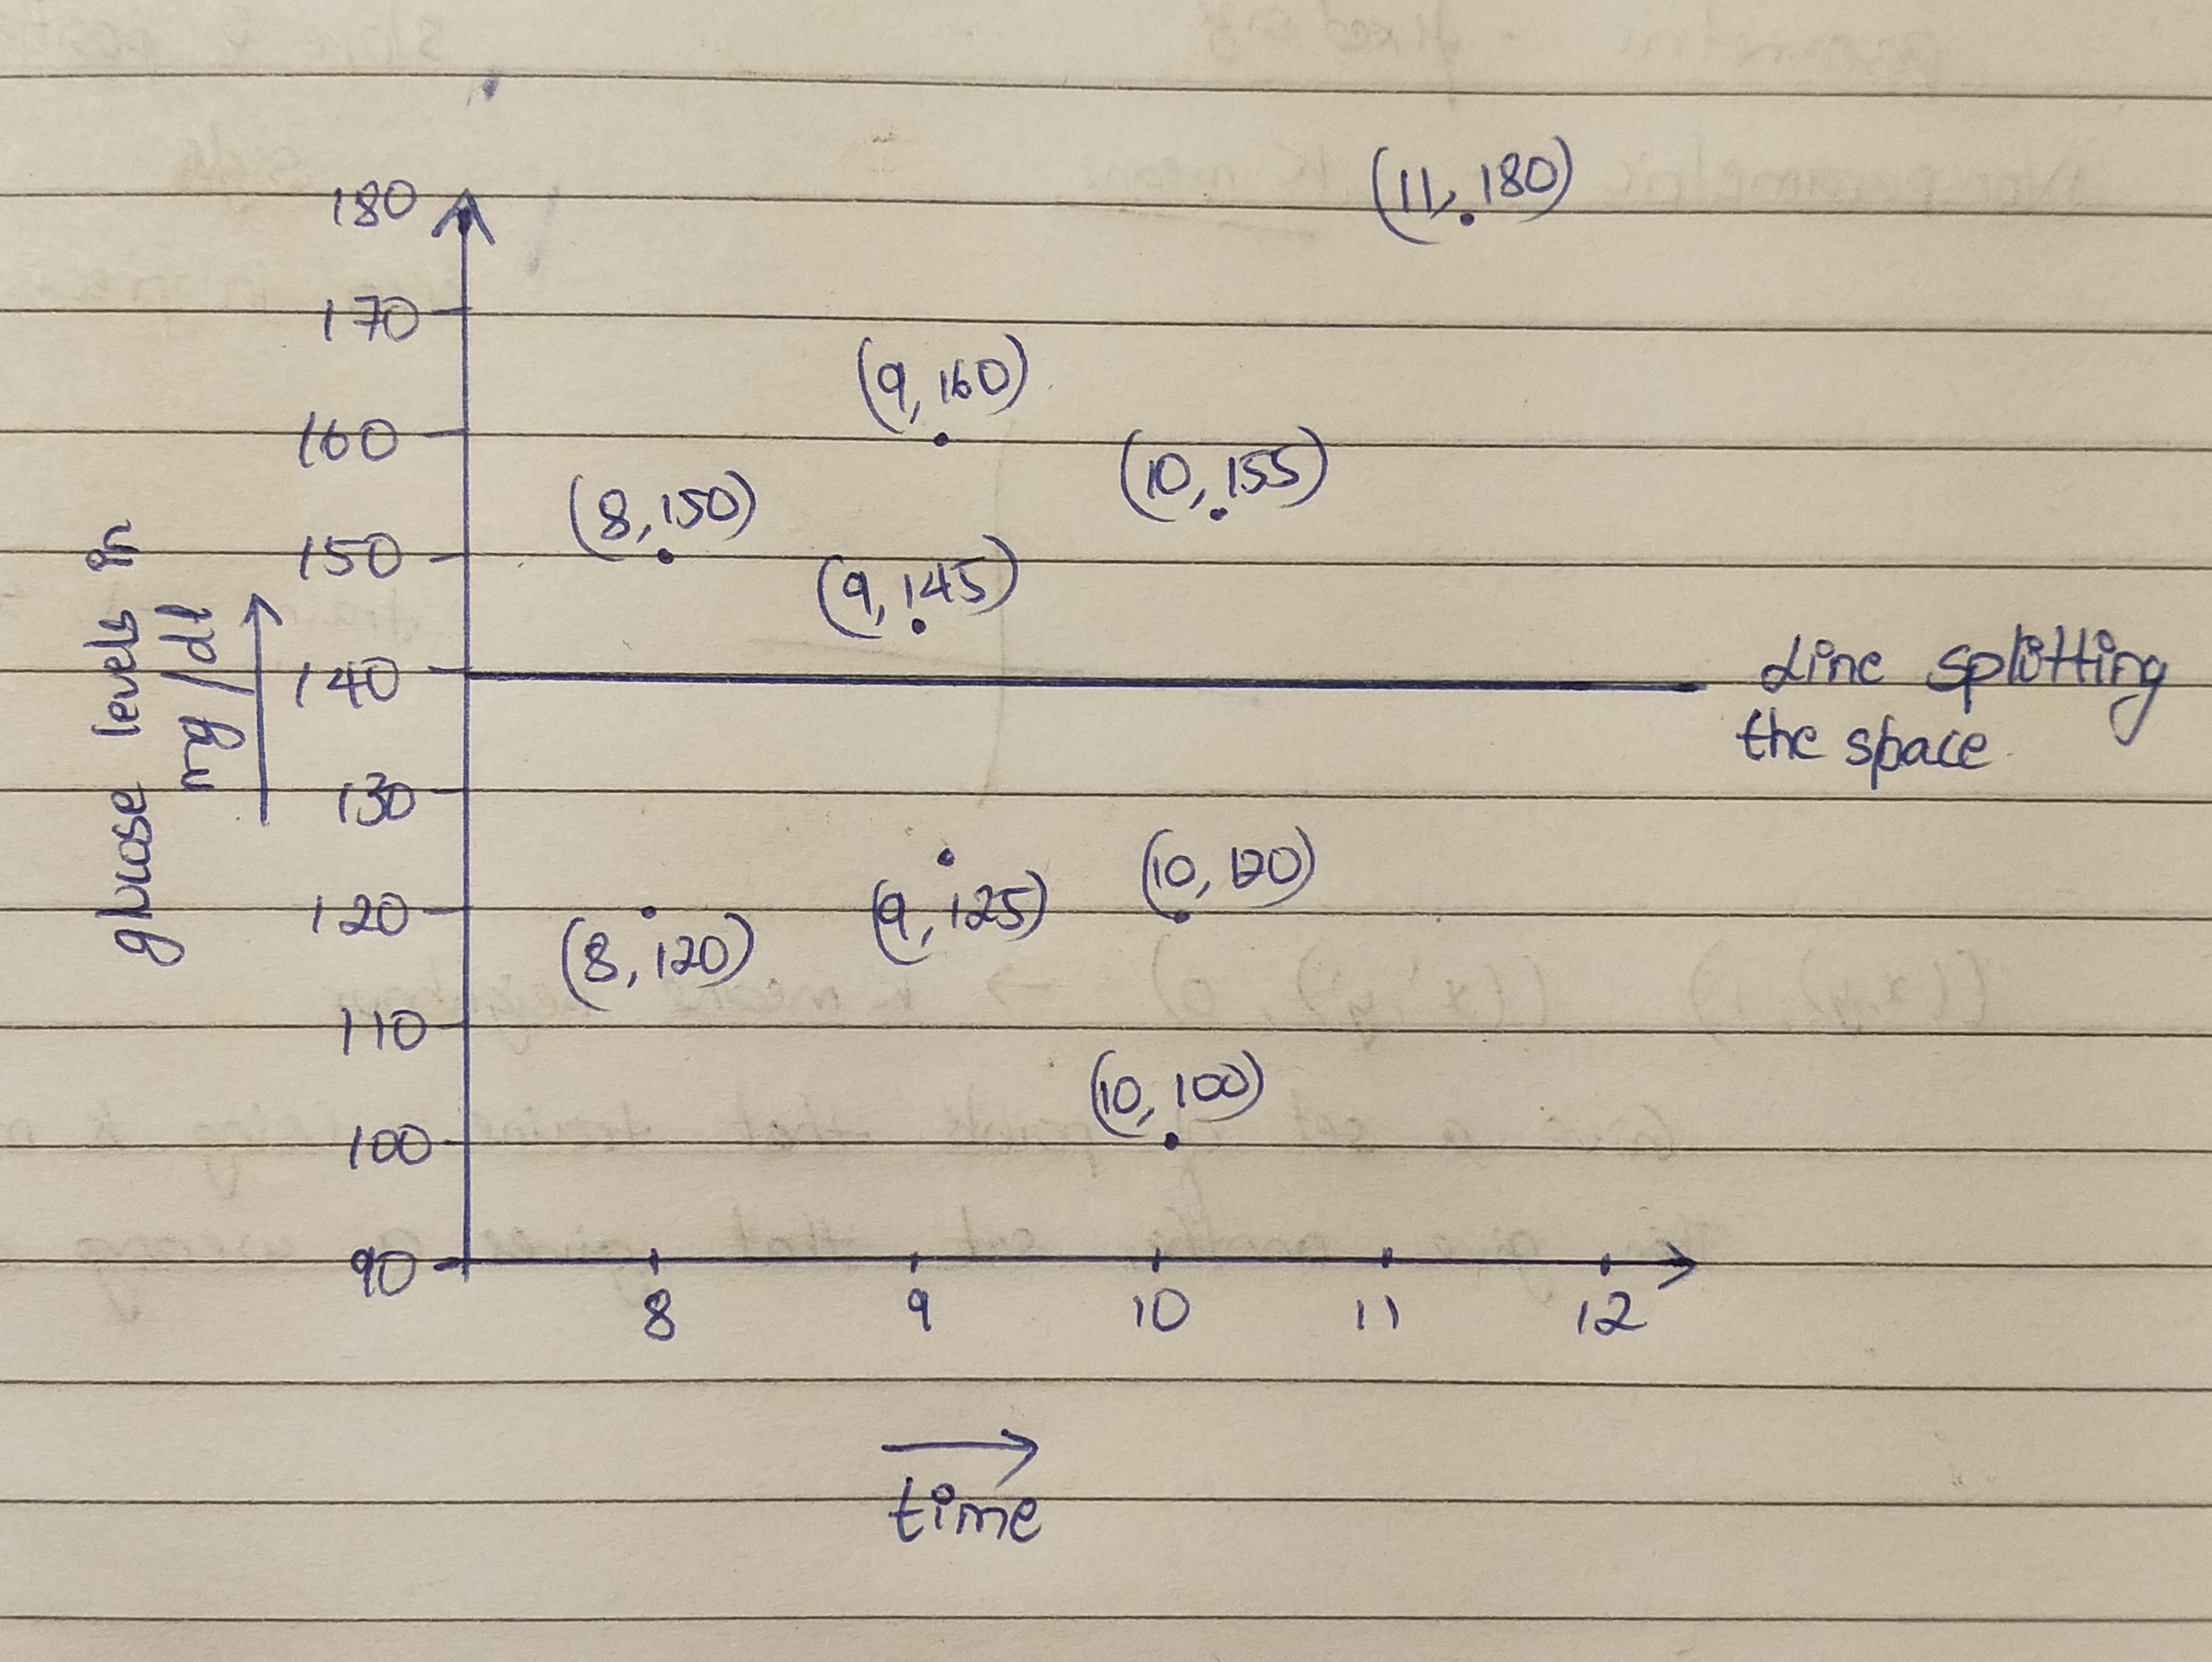 (11, 180)
180
170
(9, 160)
160
(10, 155)
(8, 150)
150
(9, 145)
glucose levels in
mg/dl
140
Line splitting
the space
130
(10, 120)
120
(9, 125)
(8, 120)
110
(10, 100)
100
90
8 9 10 11 12
time